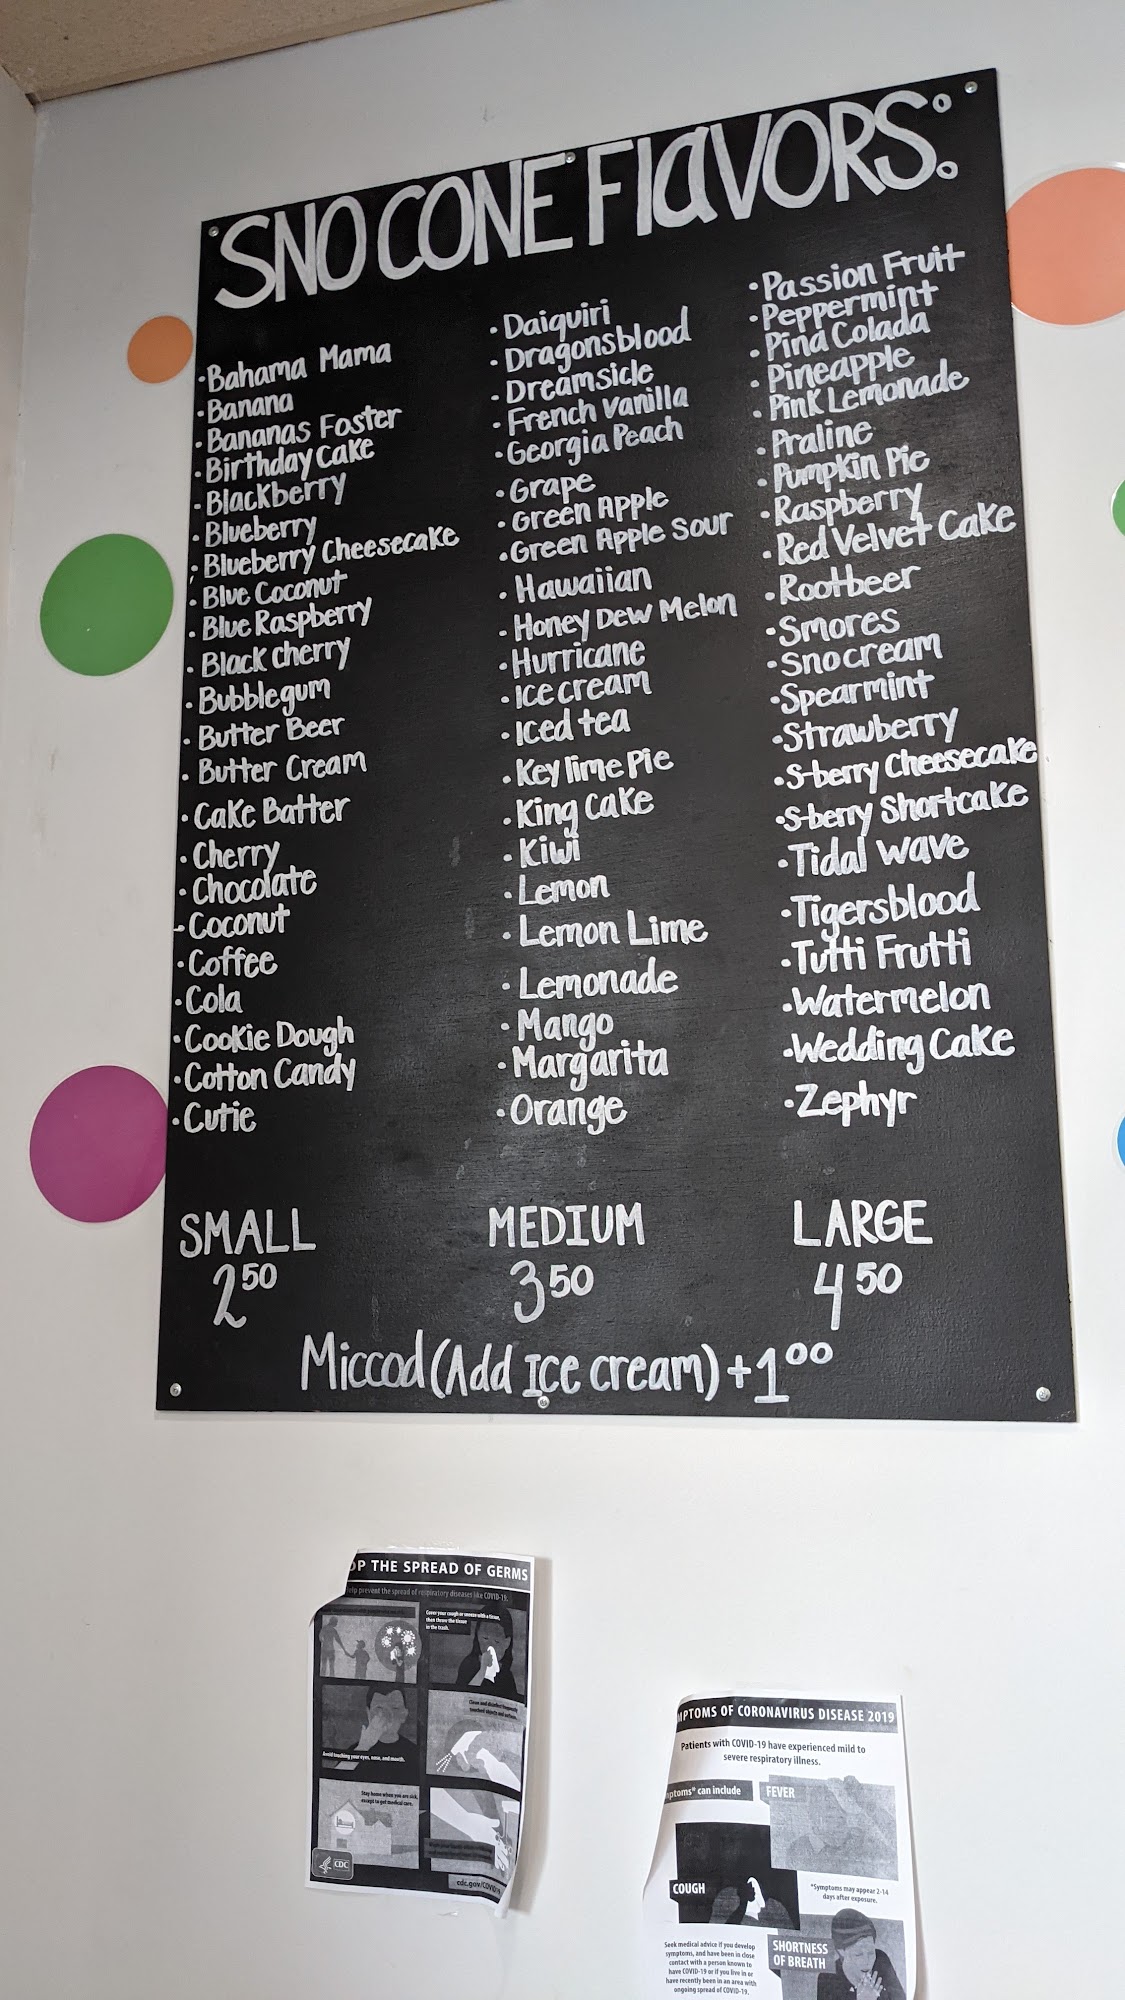 SNO CONE FlaVORS:
·Bahama Mama
·Banana
·Bananas Foster
·Birthday Cake
·Blackberry
·Blueberry
·Blueberry Cheesecake
·Blue Coconut
·Blue Raspberry
·Black cherry
·Bubblegum
·Butter Beer
·Butter Cream
·Cake Batter
·Cherry
·Chocolate
·Coconut
·Coffee
·Cola
·Cookie Dough
·Cotton Candy
·Cutie
·Daiquiri
·Dragonsblood
·Dreamsicle
·French Vanilla
·Georgia Peach
·Grape
·Green Apple
·Green Apple Sour
·Hawaiian
·Honey Dew Melon
·Hurricane
·Ice cream
·Iced tea
·Key lime Pie
·King Cake
·Kiwi
·Lemon
·Lemon Lime
·Lemonade
·Mango
·Margarita
·Orange
·Passion Fruit
·Peppermint
·Pina Colada
·Pineapple
·Pink Lemonade
·Praline
·Pumpkin Pie
·Raspberry
·Red Velvet Cake
·Rootbeer
·Smores
·Snocream
·Spearmint
·Strawberry
·S-berry Cheesecake
·S-berry Shortcake
·Tidal wave
·Tigersblood
·Tutti Frutti
·Watermelon
·Wedding Cake
·Zephyr
SMALL
2 50
MEDIUM
3 50
LARGE
4 50
Miccod (Add Ice cream) +1 00
OP THE SPREAD OF GERMS
elp prevent the spread of respiratory diseases like COVID-19.
Cover your cough or sneeze with a tissue,
then throw the tissue
in the trash.
Clean and disinfect frequently
touched objects and surfaces.
Avoid touching your eyes, nose, and mouth.
Stay home when you are sick,
except to get medical care.
CDC
cdc.gov/COVID
MPTOMS OF CORONAVIRUS DISEASE 2019
Patients with COVID-19 have experienced mild to
severe respiratory illness.
ptoms* can include
FEVER
COUGH
*Symptoms may appear 2-14
days after exposure.
SHORTNESS
OF BREATH
Seek medical advice if you develop
symptoms, and have been in close
contact with a person known to
have COVID-19 or if you live in or
have recently been in an area with
ongoing spread of COVID-19.